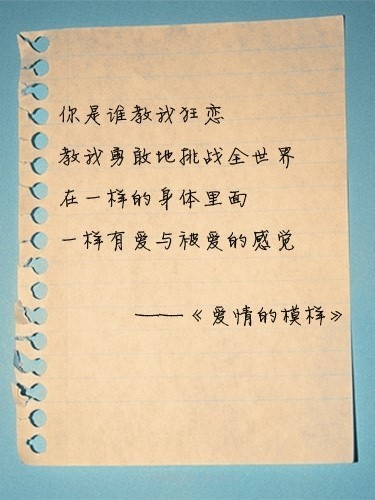 你是谁教我狂恋
教我勇敢地挑战全世界
在一样的身体里面
一样有爱与被爱的感觉
——《爱情的模样》